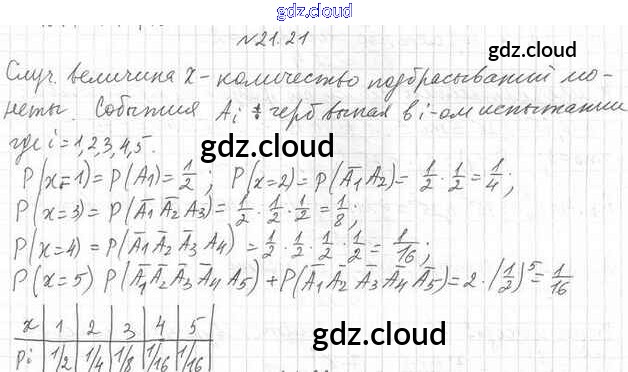 gdz.cloud
№21.21
gdz.cloud
Случ. величина X - количество подбрасываний мо-
неты. События Ai : герб выпал в i-ом испытании
где i = 1,2,3,4,5.
gdz.cloud
P(x=1) = P(A1) = 1/2 ; P(x=2) = P(Ā1 A2) = 1/2 · 1/2 = 1/4 ;
P(x=3) = P(Ā1 Ā2 A3) = 1/2 · 1/2 · 1/2 = 1/8 ;
gdz.cloud
P(x=4) = P(Ā1 Ā2 Ā3 A4) = 1/2 · 1/2 · 1/2 · 1/2 = 1/16 ;
P(x=5) P(Ā1 Ā2 Ā3 Ā4 A5) + P(Ā1 Ā2 Ā3 Ā4 Ā5) = 2 · (1/2)^5 = 1/16
x | 1 | 2 | 3 | 4 | 5
gdz.cloud
Pi | 1/2 | 1/4 | 1/8 | 1/16 | 1/16